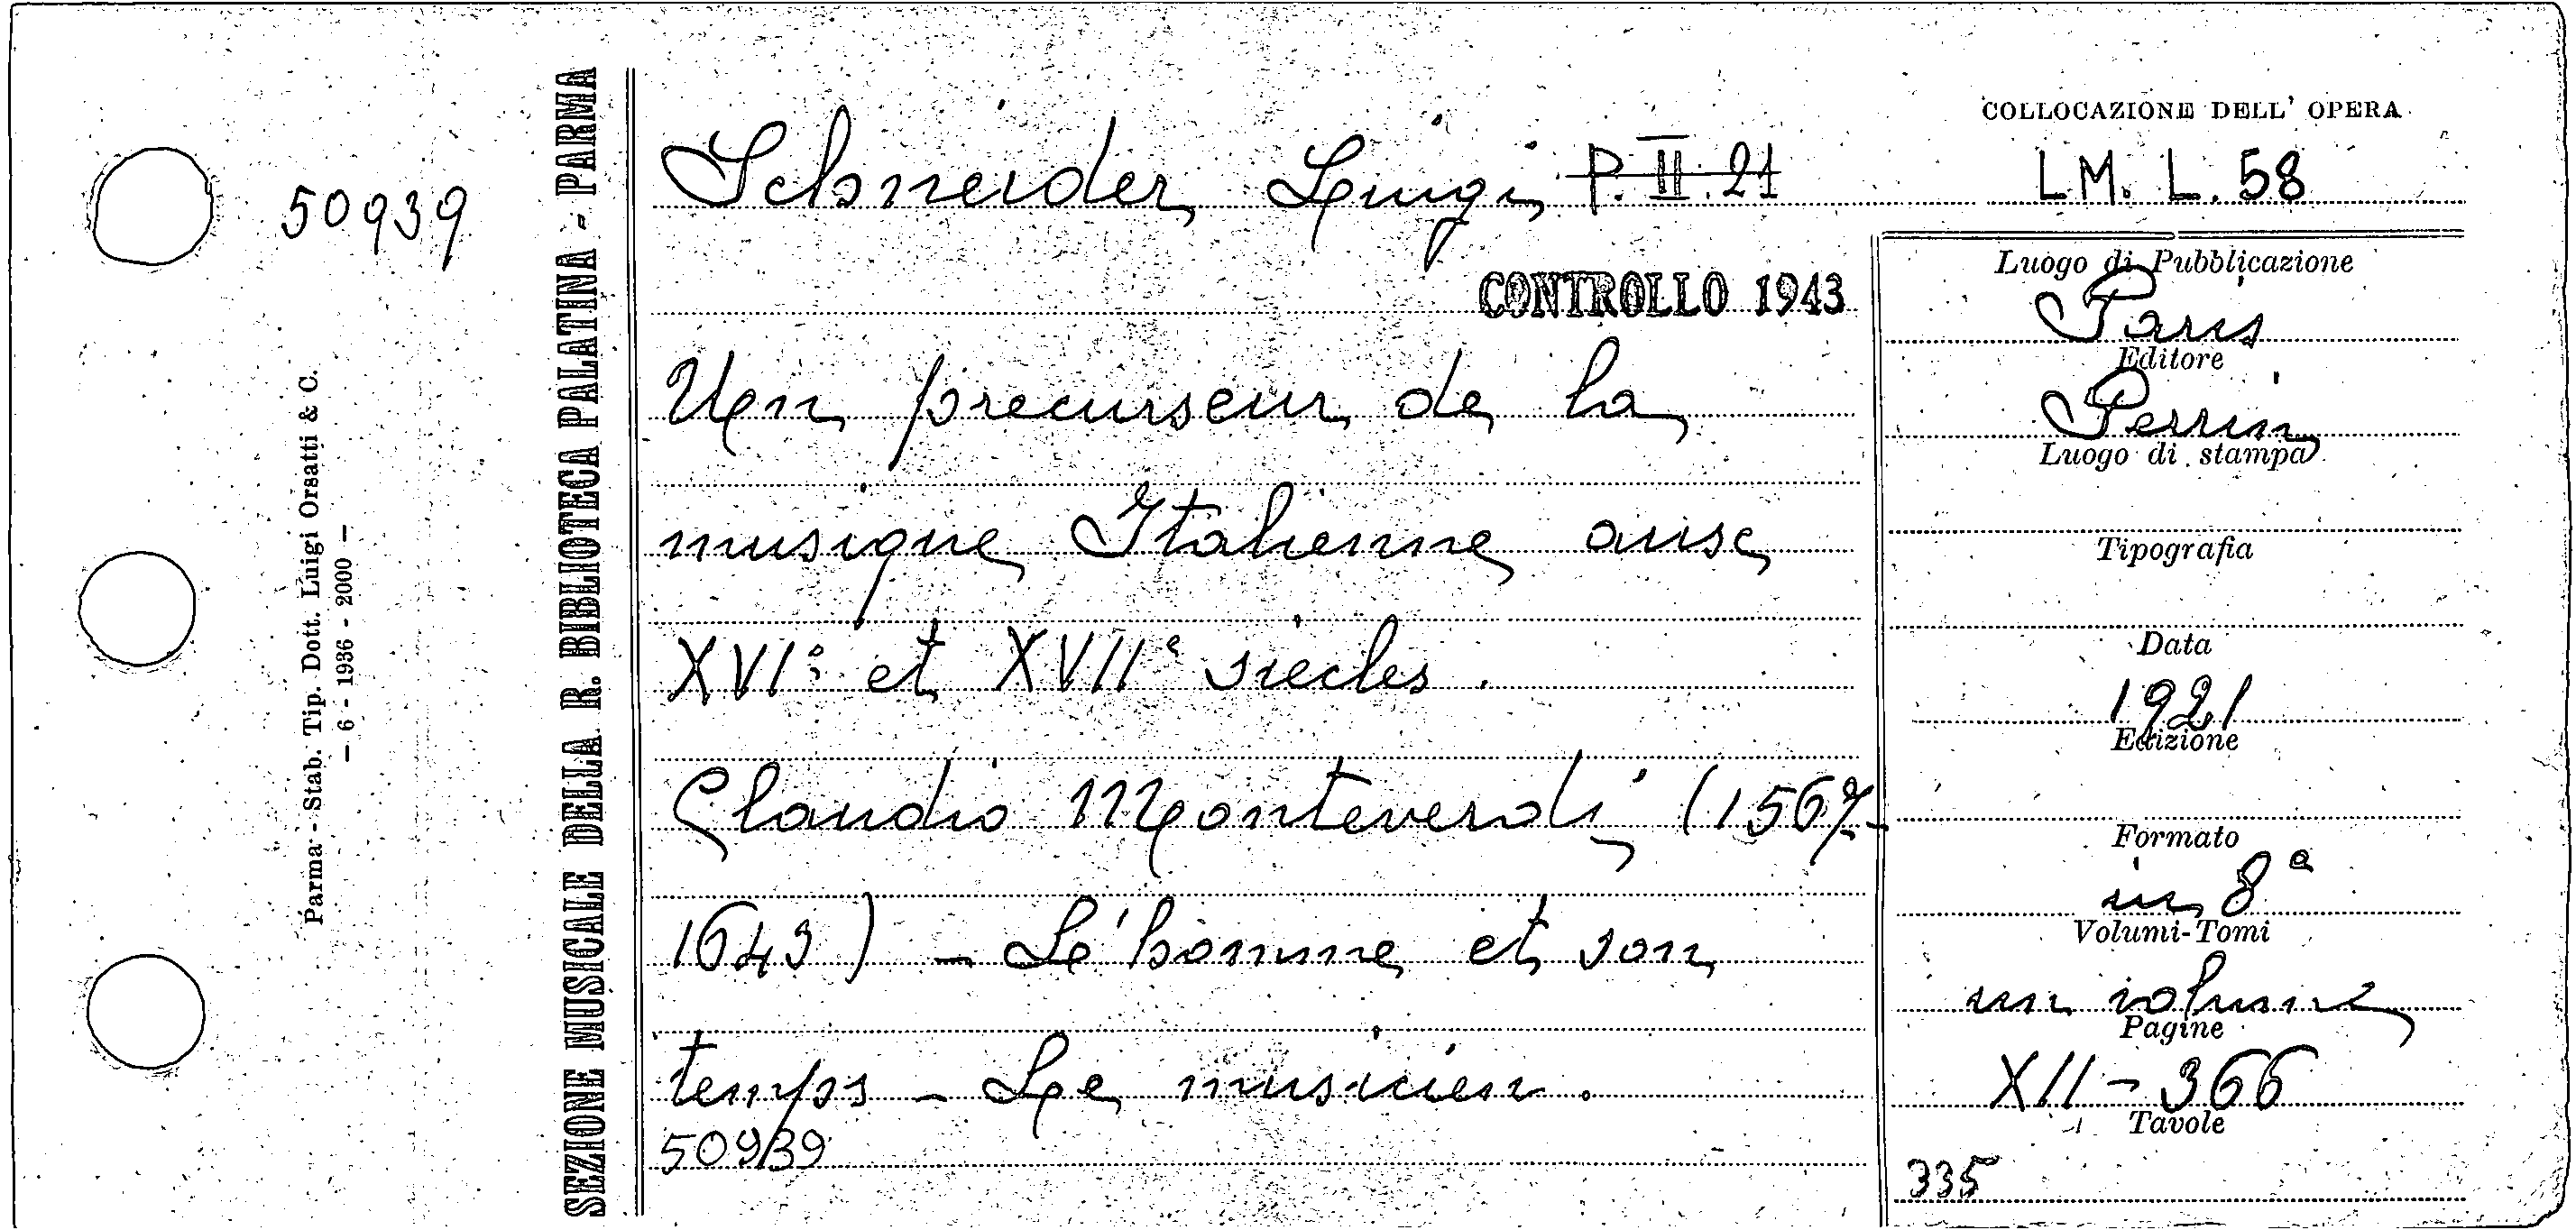 50939
Parma - Stab. Tip. Dott. Luigi Orsatti & C.
— 6 - 1936 - 2000 —
SEZIONE MUSICALE DELLA R. BIBLIOTECA PALATINA - PARMA
Schneider Luigi P. II. 21
CONTROLLO 1943
Un precurseur de la
musique Italienne aux
XVIe et XVIIe siecles.
Claudio Monteverdi (1567-
1643) - L'homme et son
temps - Le musicien.
50939
COLLOCAZIONE DELL' OPERA
LM. L. 58
Luogo di Pubblicazione
Paris
Editore
Perrin
Luogo di stampa
Tipografia
Data
1921
Edizione
Formato
in 8a
Volumi-Tomi
un volume
Pagine
XII - 366
Tavole
335